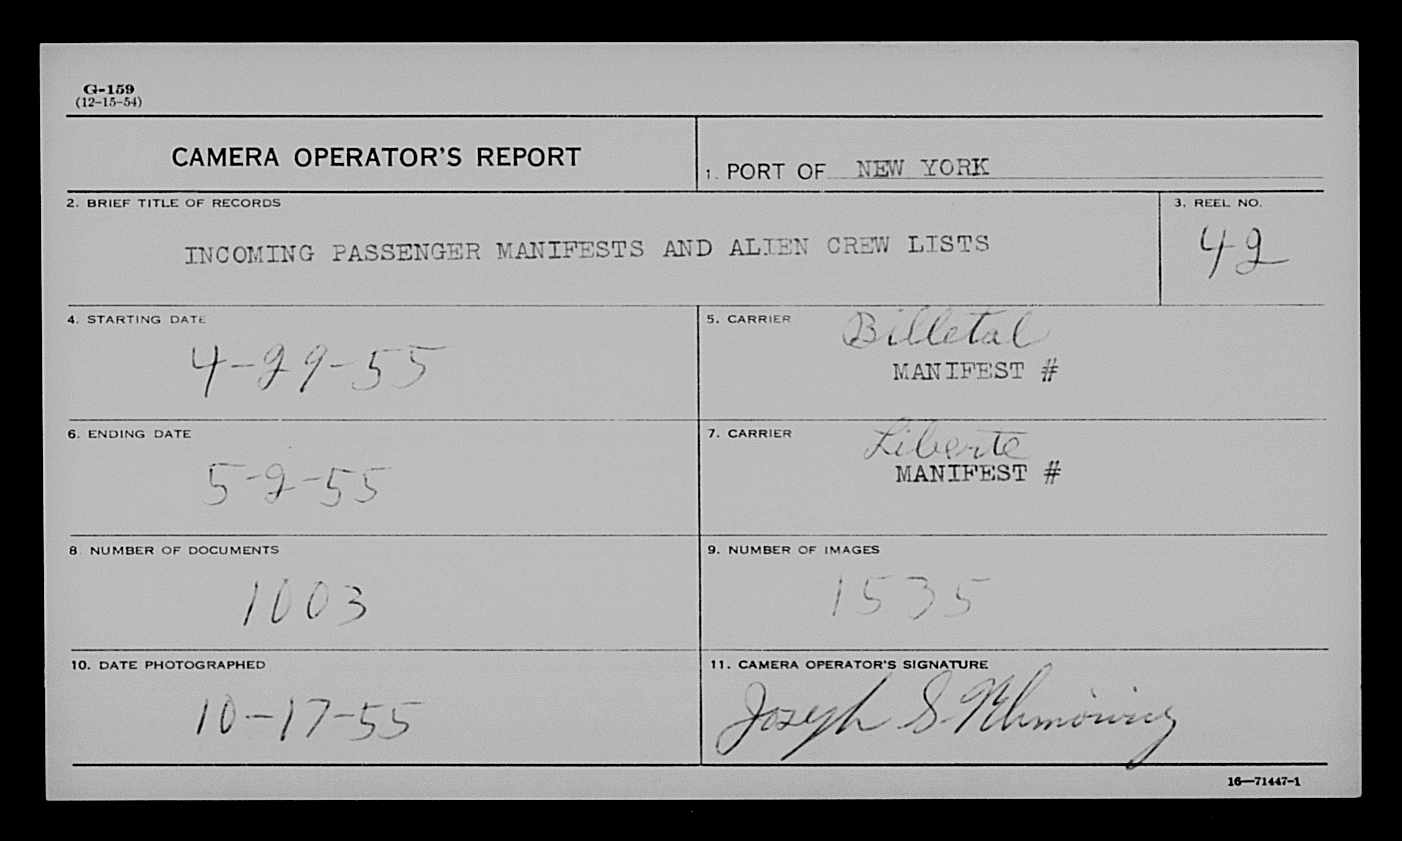 G-159
(12-15-54)
CAMERA OPERATOR'S REPORT
1. PORT OF NEW YORK
2. BRIEF TITLE OF RECORDS
INCOMING PASSENGER MANIFESTS AND ALIEN CREW LISTS
3. REEL NO.
42
4. STARTING DATE
4-29-55
5. CARRIER
Billetal
MANIFEST #
6. ENDING DATE
5-2-55
7. CARRIER
Liberte
MANIFEST #
8 NUMBER OF DOCUMENTS
1003
9. NUMBER OF IMAGES
1535
10. DATE PHOTOGRAPHED
10-17-55
11. CAMERA OPERATOR'S SIGNATURE
Joseph S.
16—71447-1